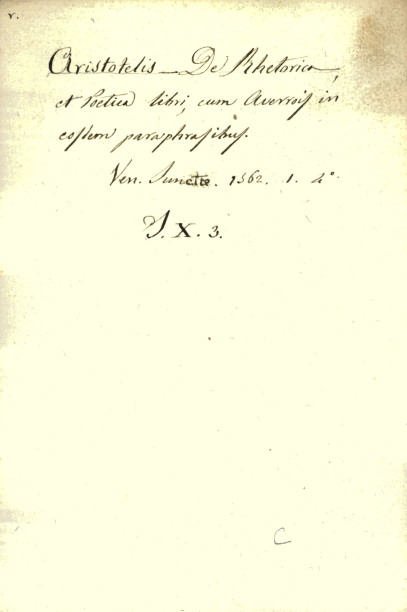 v.
Aristotelis _ De Rhetorica,
et Poetica libri, cum Averrois in
eosdem paraphrasibus.
Ven. Junctæ. 1562. 1. 4°.
J. X. 3.
C